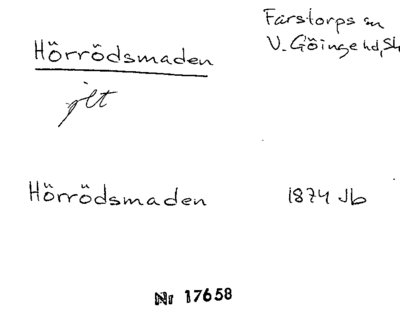 Hörrödsmaden
Farstorps sn
V. Göinge hd, Sk
jlt
Hörrödsmaden
1874 Jb
Nr 17658